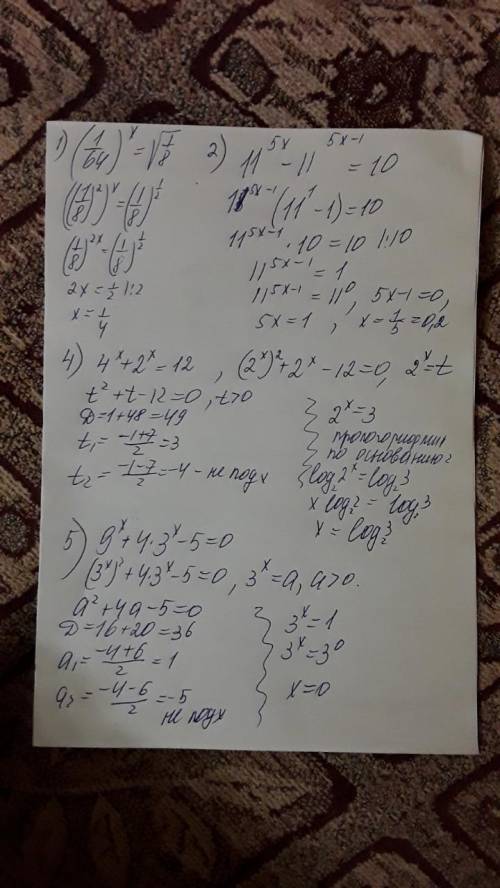 1) (1/64)^x = √(1/8)
((1/8)^2)^x = (1/8)^(1/2)
(1/8)^(2x) = (1/8)^(1/2)
2x = 1/2 |:2
x = 1/4
2) 11^(5x) - 11^(5x-1) = 10
11^(5x-1) (11^1 - 1) = 10
11^(5x-1) · 10 = 10 |:10
11^(5x-1) = 1
11^(5x-1) = 11^0, 5x-1=0,
5x = 1, x = 1/5 = 0,2
4) 4^x + 2^x = 12, (2^x)^2 + 2^x - 12 = 0, 2^x = t
t^2 + t - 12 = 0, t>0
D = 1+48 = 49
t₁ = (-1+7)/2 = 3
t₂ = (-1-7)/2 = -4 - не подх
2^x = 3
прологарифмир
по основанию 2
log₂2^x = log₂3
x log₂2 = log₂3
x = log₂3
5) 9^x + 4·3^x - 5 = 0
(3^x)^2 + 4·3^x - 5 = 0, 3^x = a, a>0.
a^2 + 4a - 5 = 0
D = 16+20 = 36
a₁ = (-4+6)/2 = 1
a₂ = (-4-6)/2 = -5
не подх
3^x = 1
3^x = 3^0
x = 0